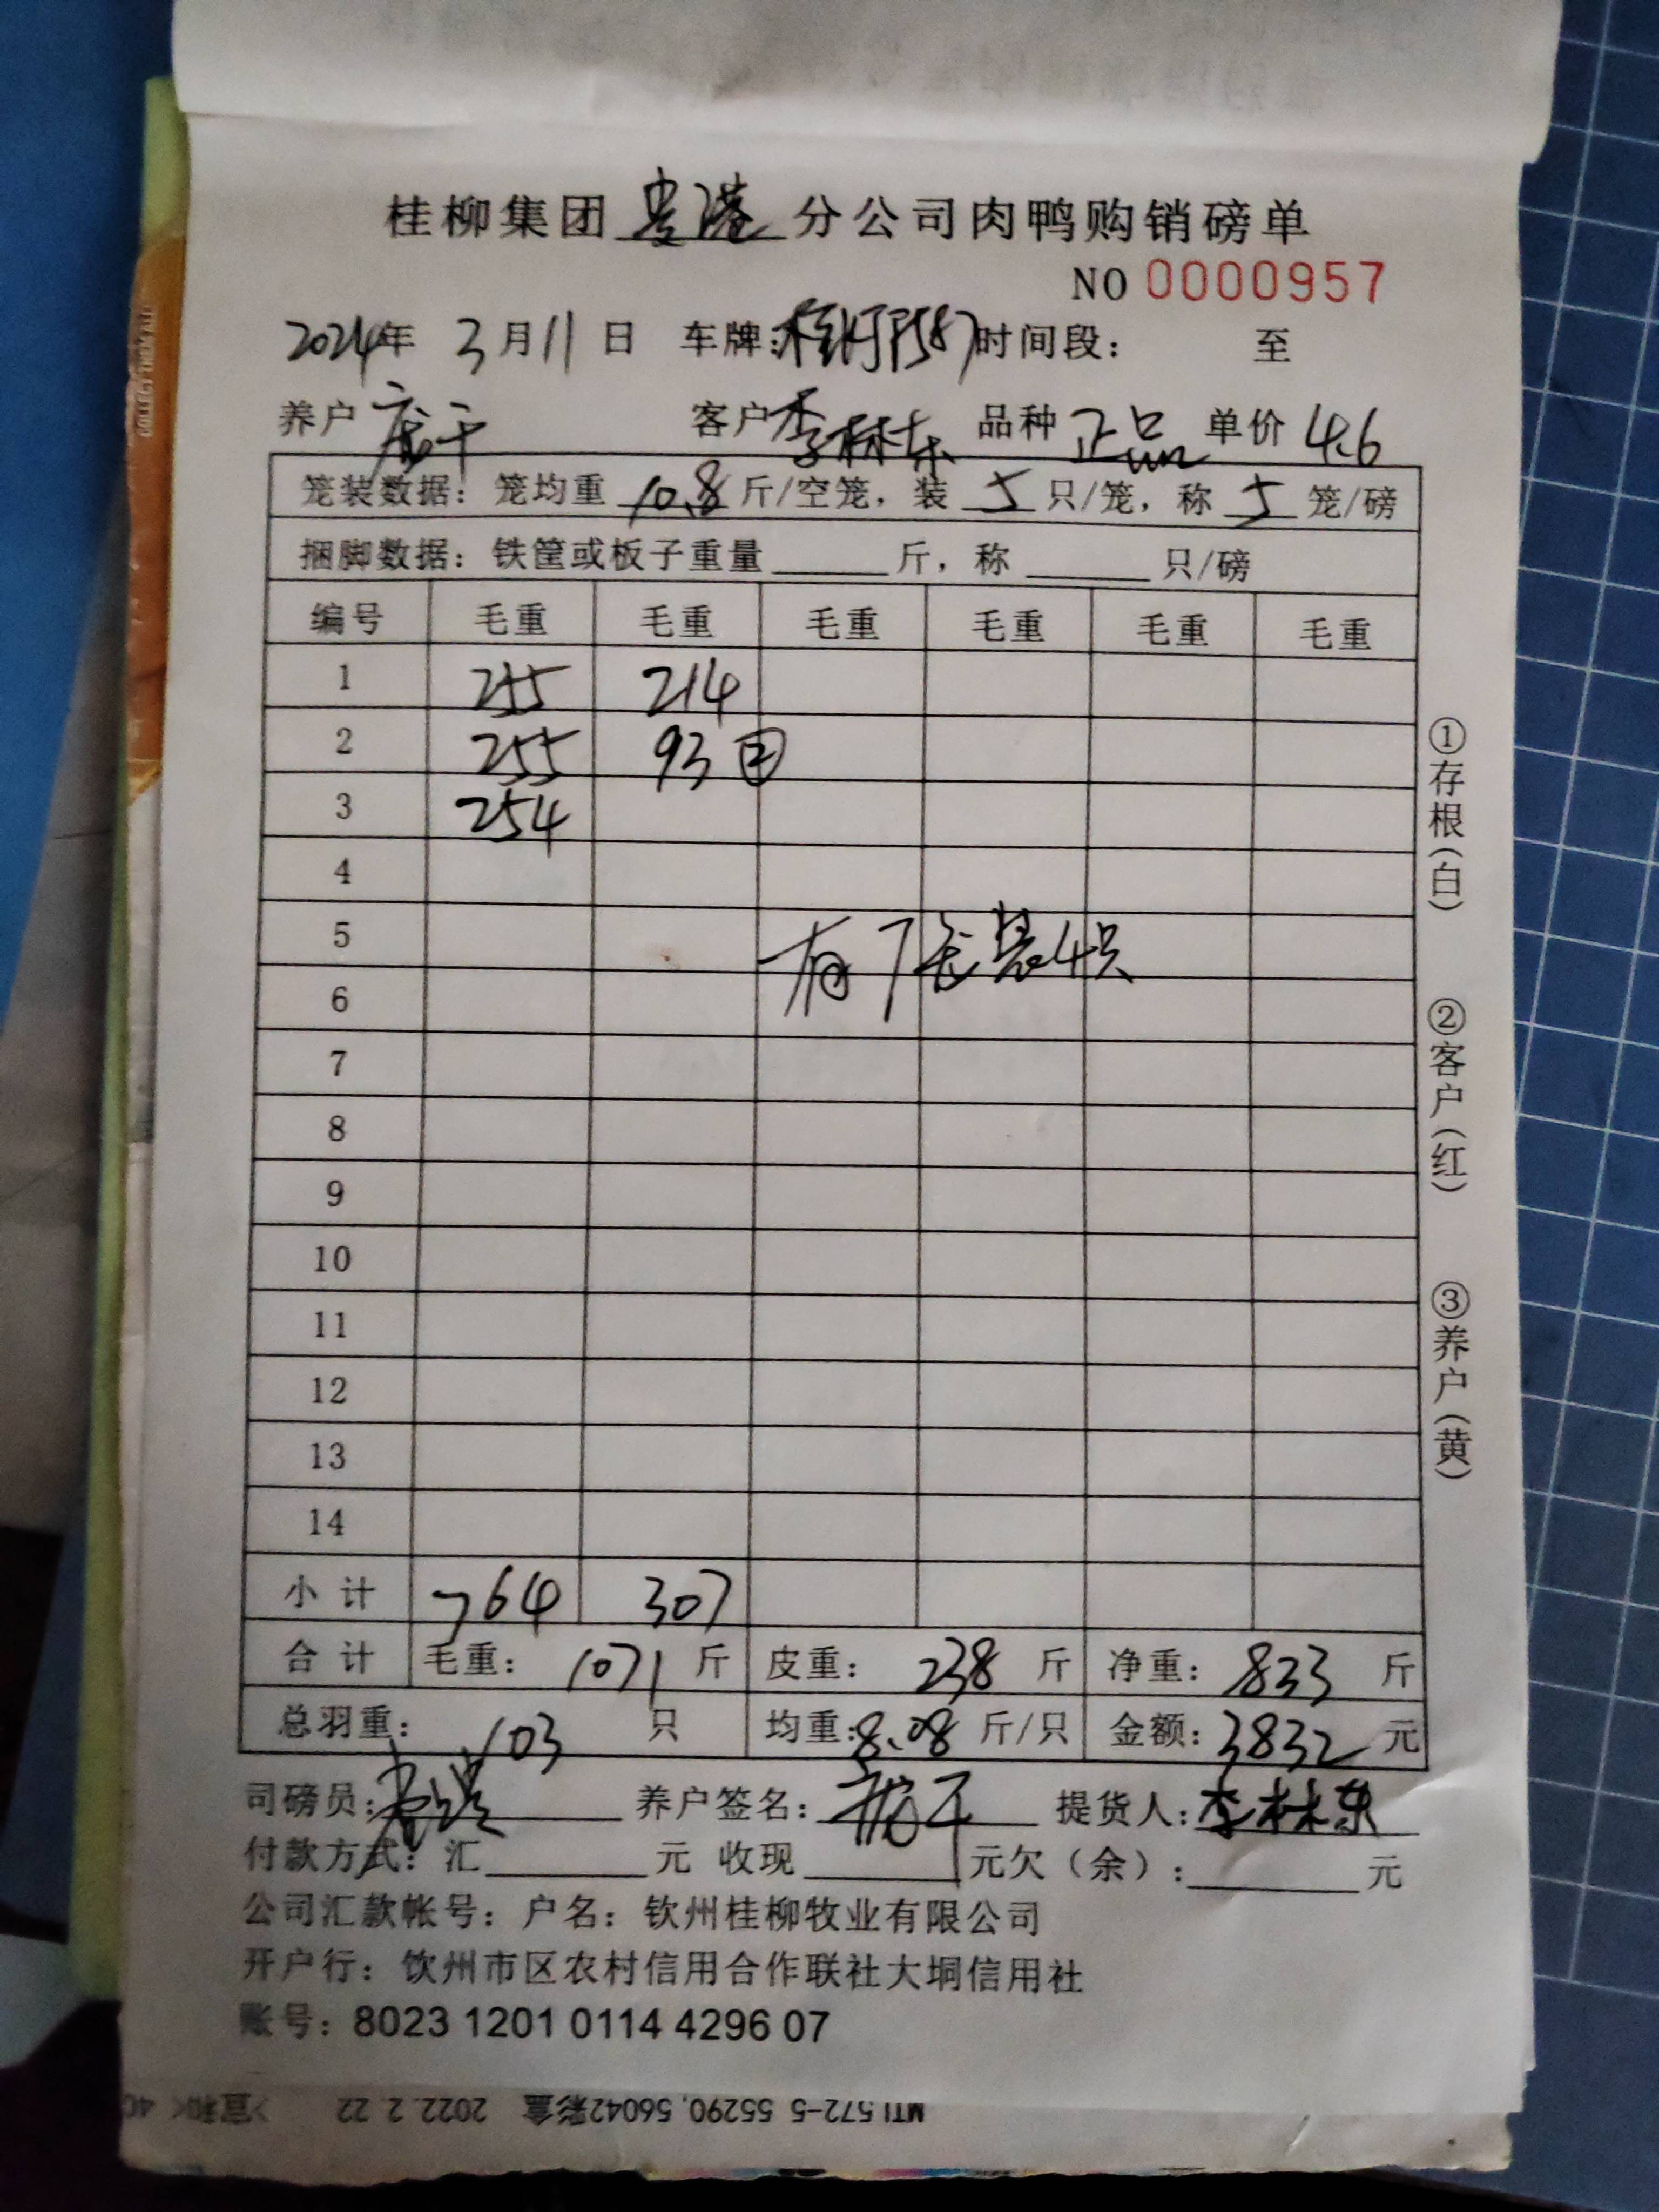 桂柳集团 贵港 分公司肉鸭购销磅单
NO 0000957
2024年 3月11日 车牌: 时间段: 至
养户 客户李林东 品种 正品 单价 4.6
笼装数据: 笼均重 10.8 斤/空笼, 装 5 只/笼, 称 5 笼/磅
捆脚数据: 铁筐或板子重量 斤, 称 只/磅
编号 毛重 毛重 毛重 毛重 毛重 毛重
1 255 214
2 255 93 ②
3 254
4
5
有7 装4只
6
7
8
9
10
11
12
13
14
小计 764 307
合计 毛重: 1071 斤 皮重: 238 斤 净重: 833 斤
总羽重: 103 只 均重: 8.08 斤/只 金额: 3832 元
司磅员: 养户签名: 提货人: 李林东
付款方式: 汇 元 收现 元欠(余): 元
公司汇款帐号: 户名: 钦州桂柳牧业有限公司
开户行: 饮州市区农村信用合作联社大垌信用社
账号: 8023 1201 0114 4296 07
①存根(白)
②客户(红)
③养户(黄)
MTL572-5 55290, 56042彩盒 2022.2.22